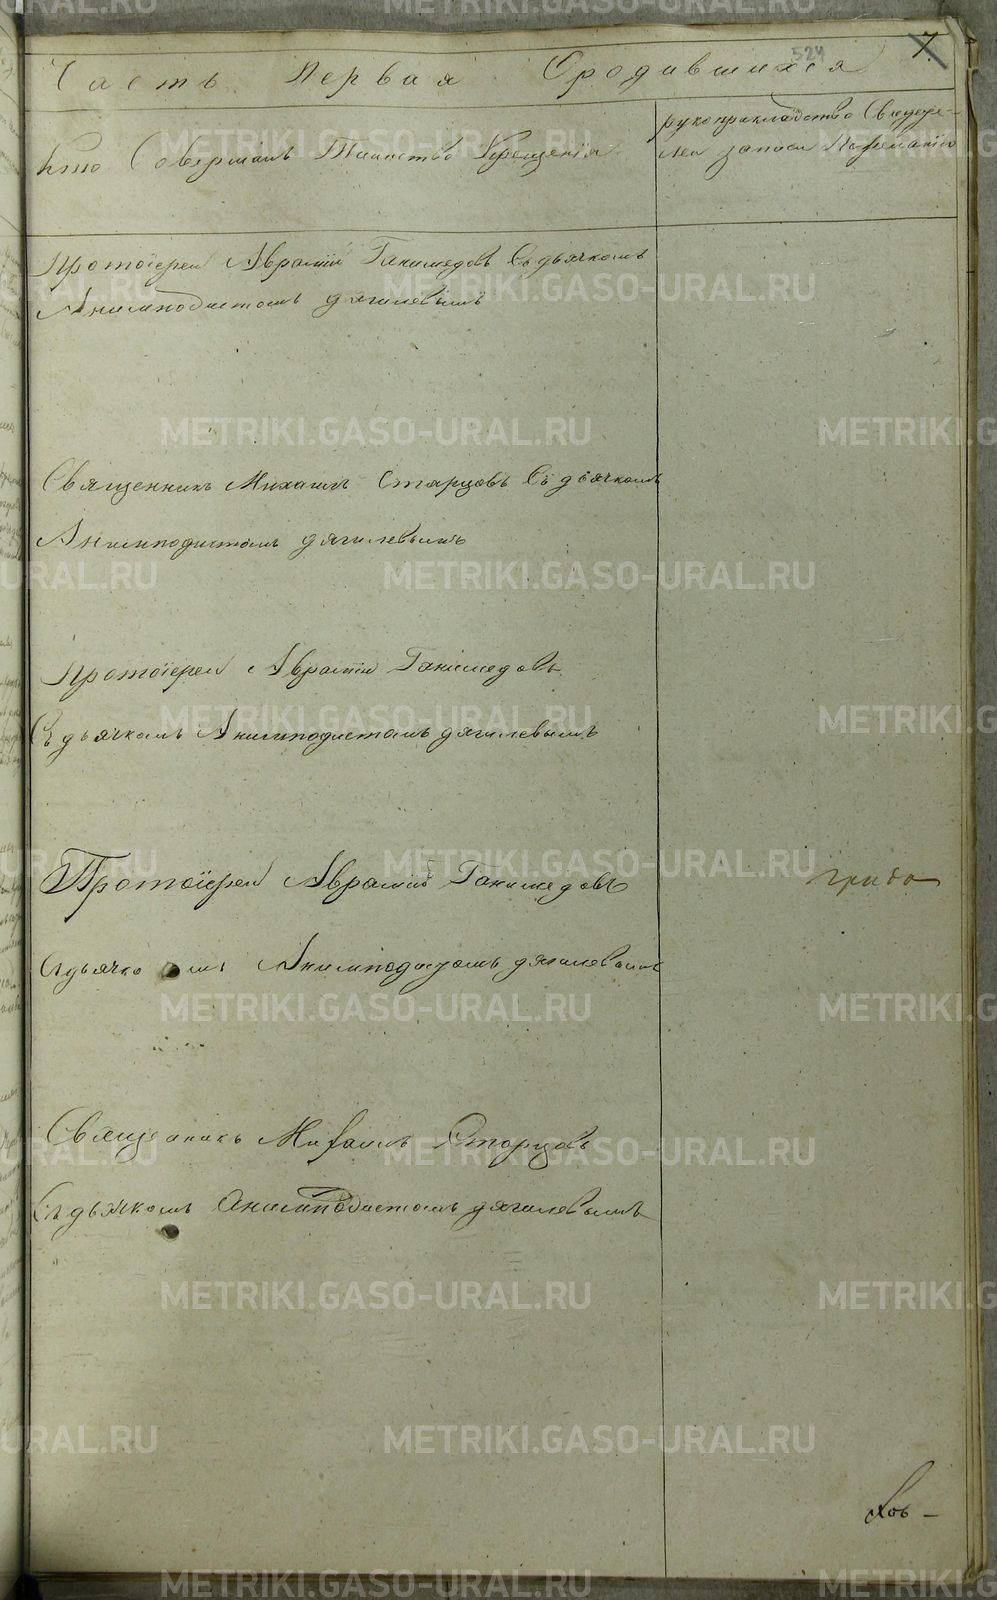 7.
524
Часть Первая О родившихся
Кто Совершалъ Таинство Крещенія
рукоприкладство Свидете-
лей записи По желанію
Протоіерей Аврамій Ганимедовъ Съ дьячкомъ
Анемподистомъ дягилевымъ
Священникъ Михаилъ Старцовъ Съ дьячкомъ
Анемподистомъ дягилевымъ
Протоіерей Аврамій Ганимедовъ
Съ дьячкомъ Анемподистомъ дягилевымъ
Протоіерей Аврамій Ганимедовъ
Съ дьячкомъ Анемподистомъ дягилевымъ
Священникъ Михаилъ Старцовъ
Съ дьячкомъ Анемподистомъ дягилевымъ
METRIKI.GASO-URAL.RU